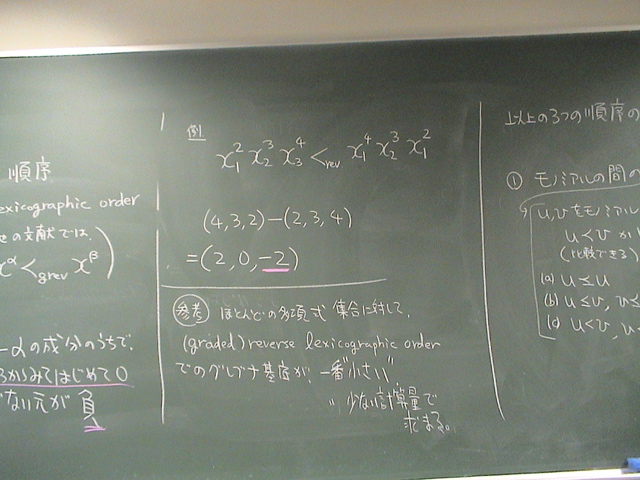 順序
exicographic order
の文献では、
x^α <grev x^β )
-αの成分のうちで、
からみてはじめて0
ない元が負
例
x₁² x₂³ x₃⁴ <rev x₁⁴ x₂³ x₁²
(4,3,2)-(2,3,4)
=(2,0,-2)
参考 ほとんどの多項式集合に対して、
(graded) reverse lexicographic order
でのグレブナ基底が、一番"小さい"
〃 少ない計算量で
求まる。
以上の3つの順序の
① モノミアルの間の
u,vをモノミアル
u<v か
(比較できる)
(a) u≤u
(b) u≤v, v≤
(c) u<v, u